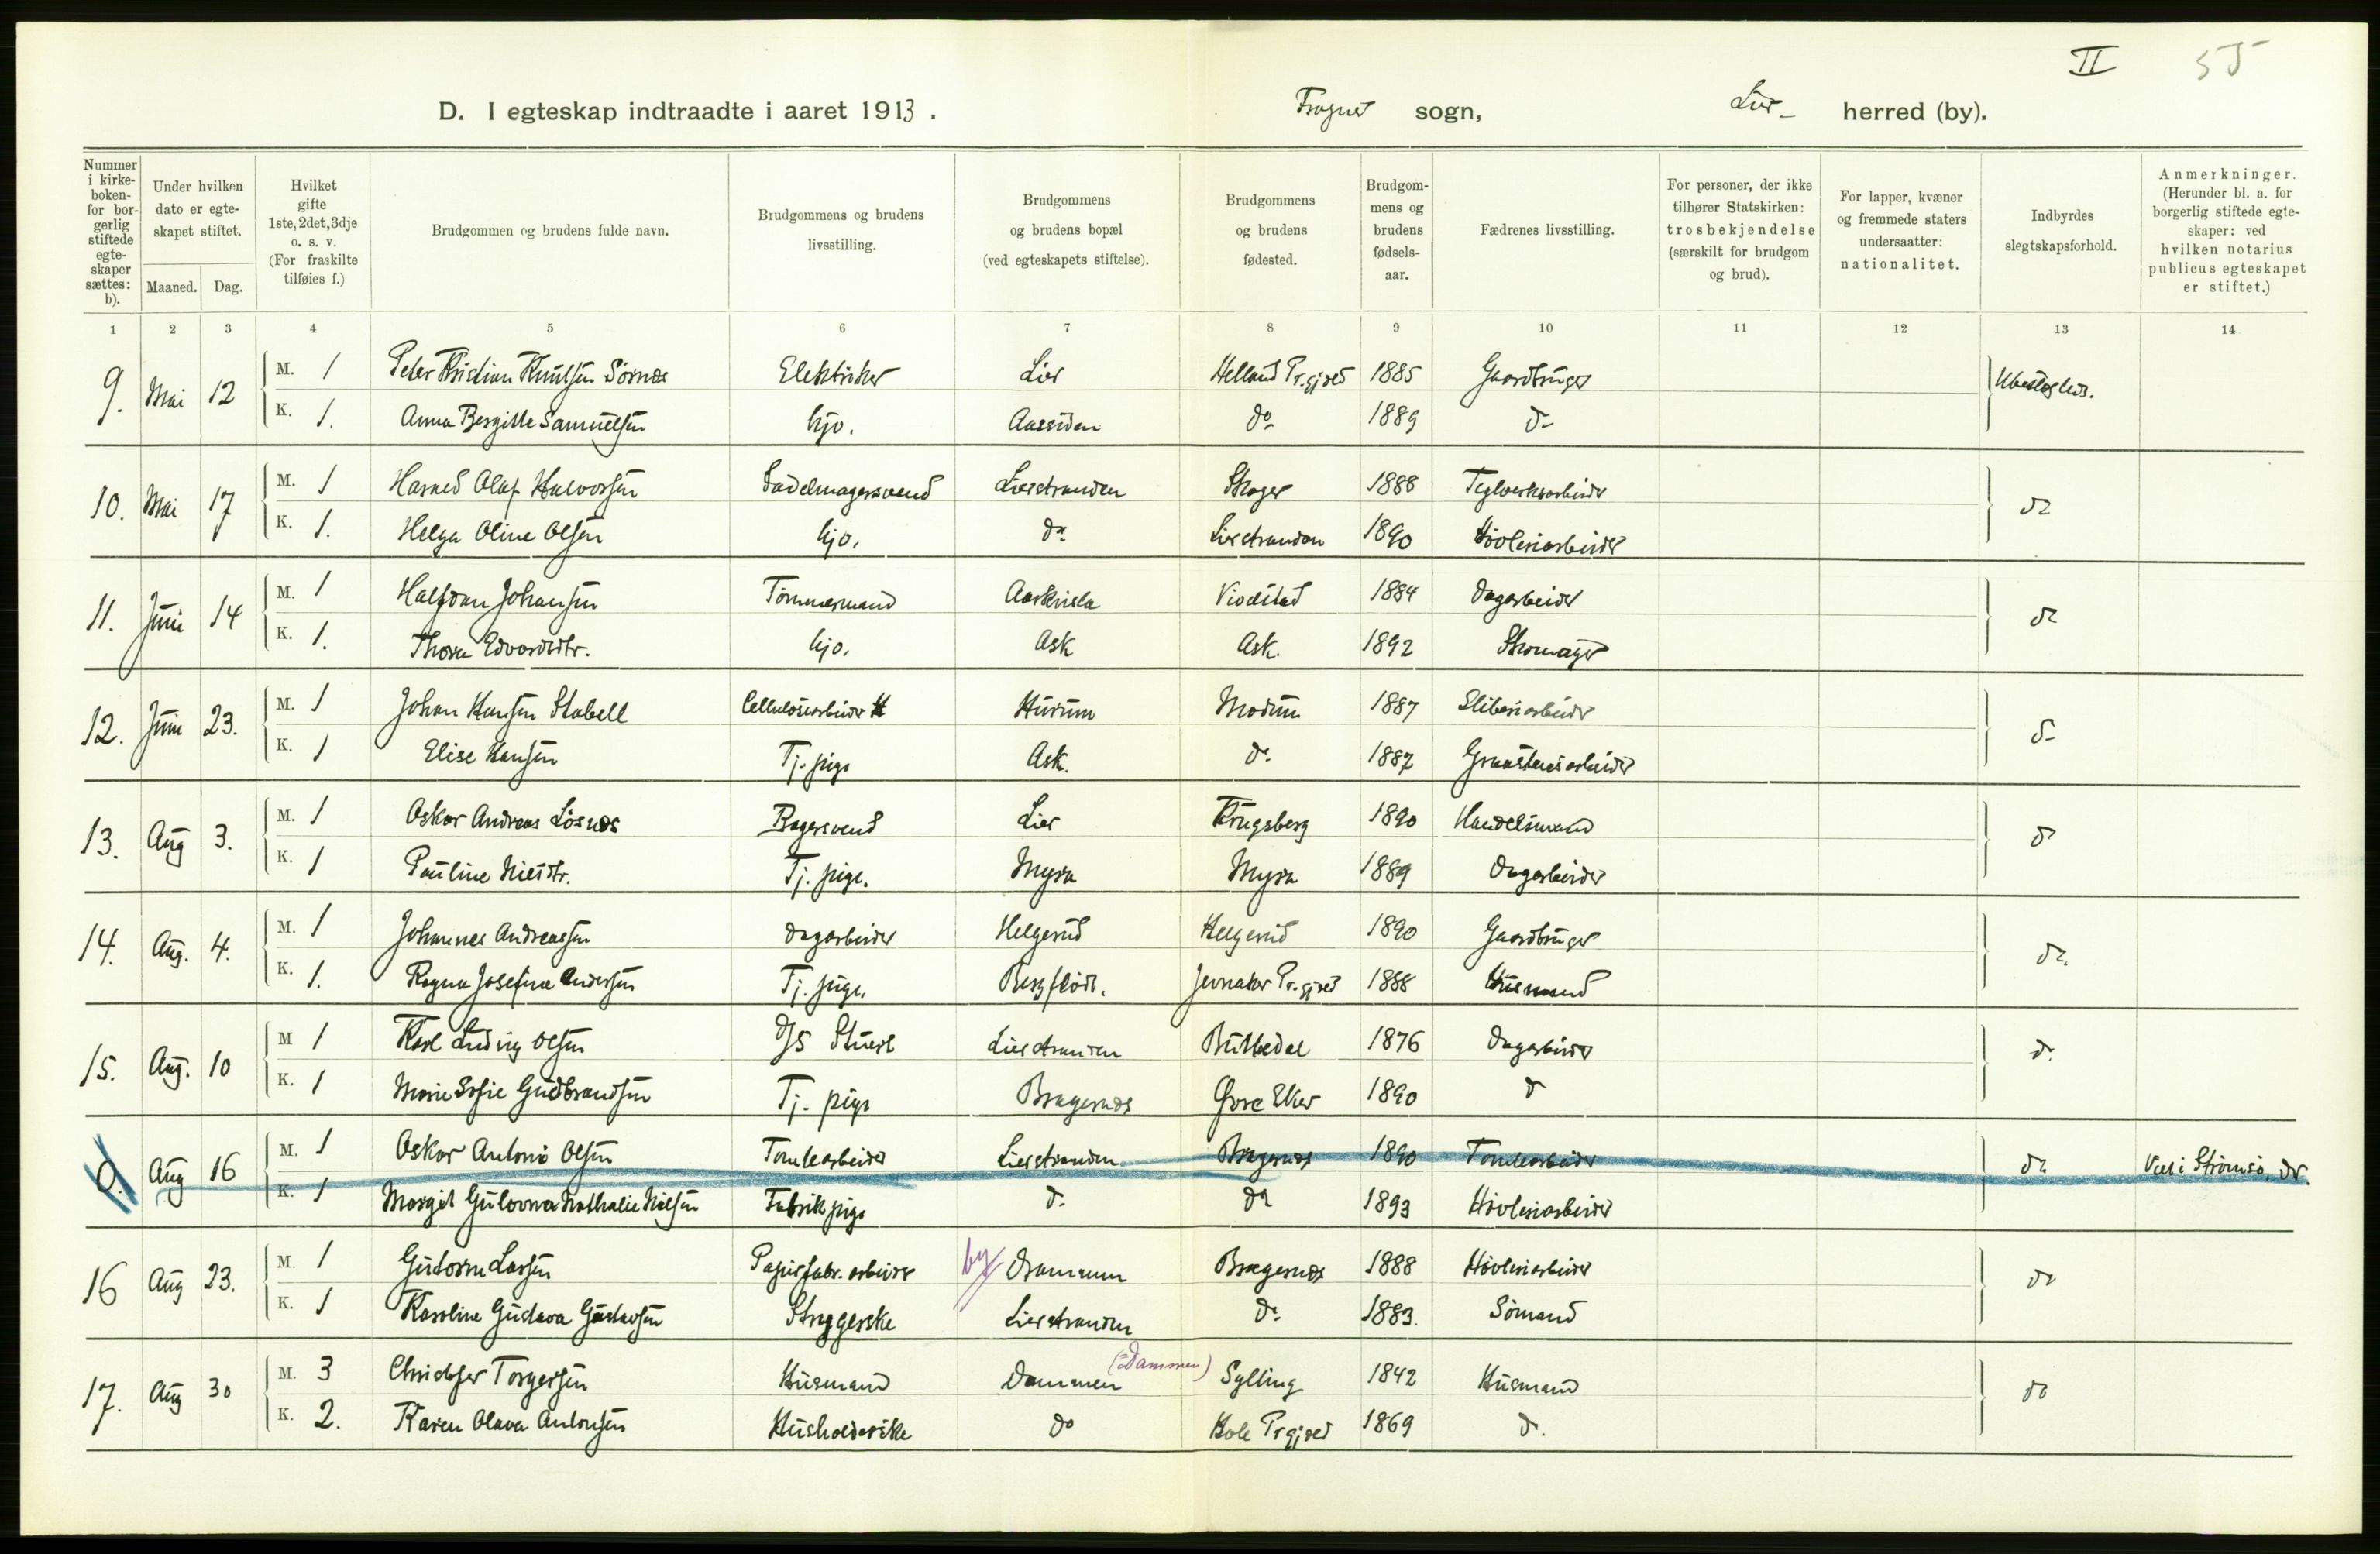 II 55
D. I egteskap indtraadte i aaret 1913. Frogner sogn, Lier herred (by).
Nummer i kirkeboken- for borgerlig stiftede egteskaper sættes: b).
Under hvilken dato er egteskapet stiftet.
Maaned. Dag.
Hvilket gifte 1ste, 2det, 3dje o. s. v. (For fraskilte tilføies f.)
Brudgommen og brudens fulde navn.
Brudgommens og brudens livsstilling.
Brudgommens og brudens bopæl (ved egteskapets stiftelse).
Brudgommens og brudens fødested.
Brudgommens og brudens fødselsaar.
Fædrenes livsstilling.
For personer, der ikke tilhører Statskirken: trosbekjendelse (særskilt for brudgom og brud).
For lapper, kvæner og fremmede staters undersaatter: nationalitet.
Indbyrdes slegtskapsforhold.
Anmerkninger. (Herunder bl. a. for borgerlig stiftede egteskaper: ved hvilken notarius publicus egteskapet er stiftet.)
1 2 3 4 5 6 7 8 9 10 11 12 13 14
9. Mai 12 M. 1 Peter Kristian Knutsen Sörnes Elektriker Lier Helland Pr.gjeld 1885 Gaardbruger Ubeslegted.
K. 1. Anna Bergitte Samuelsen hjv. Aassiden do 1889 d-
10. Mai 17 M. 1 Harald Olaf Halvorsen Sadelmagersvend Lierstranden Skoger 1888 Teglverksarbeider do
K. 1. Helga Oline Olsen hjv. do Lierstranden 1890 Hövleriarbeider
11. Juni 14 M. 1 Halfdan Johansen Tömmermand 1884 Dagarbeider do
K. 1. Thora Edvardsdtr. hjv. Ask Ask. 1892 Skomager
12. Juni 23. M. 1 Johan Hansen Stabell Cellulosearbeider Hurum Modum 1887 Sliberiarbeider d-
K. 1 Elise Hansen Tj. pige Ask. do 1887
13. Aug 3. M. 1 Oskar Andreas Lösnes Bagersvend Lier Kongsberg 1890 Handelsmand do
K. 1 Pauline Nilsdtr. Tj. pige. Myra Myra 1889 Dagarbeider
14. Aug. 4. M. 1 Johannes Andreassen Dagarbeider Helgerud Helgerud 1890 Gaardbruger do.
K. 1. Ragna Josefine Andersen Tj. pige. Bergflödt. Jevnaker Pr.gjeld 1888 Husmand
15. Aug. 10 M 1 Karl Ludvig Olsen D/S Stuert Lierstranden Buttedal 1876 Dagarbeider d.
K. 1 Marie Sofie Gudbrandsen Tj. pige Bragernes Øvre Eker 1890 d
0. Aug 16 M. 1 Oskar Antonio Olsen Tomtearbeider Lierstranden Bragernes 1890 Tomtearbeider do Viet i Strömsö, Dr.
K. 1 Margit Gulovva Nathalie Nielsen Fabrikpige d. do 1893 Hövleriarbeider
16 Aug 23. M. 1 Gutorm Larsen Papirfabr. arbeider by Drammen Bragernes 1888 Hövleriarbeider do
K. 1 Karoline Gustava Gustavsen Strygerske Lierstranden do 1883. Sömand
17. Aug 30 M. 3 Christofer Torgersen Husmand Dammen (=Dammen) Sylling 1842 Husmand do
K. 2. Karen Olava Antonsen Husholderske do Hole Prgjeld 1869 d.